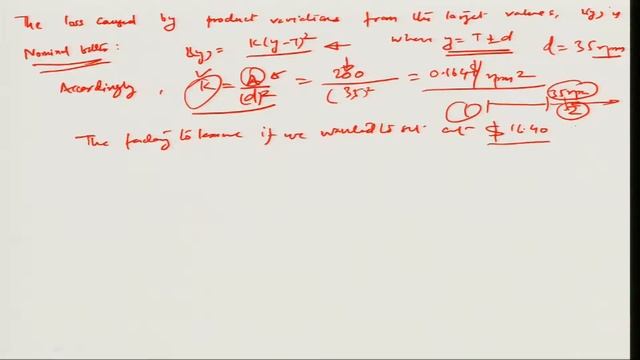 The loss caused by product variations from the target values, L(y) is
Nominal better: L(y) = K(y-T)² ← where y = T ± d d = 35 rpm
Accordingly, K = A / (d)² = 200 / (35)² = 0.164 $/rpm² 35 rpm
The factory tolerance if we wanted to set at $ 16.40